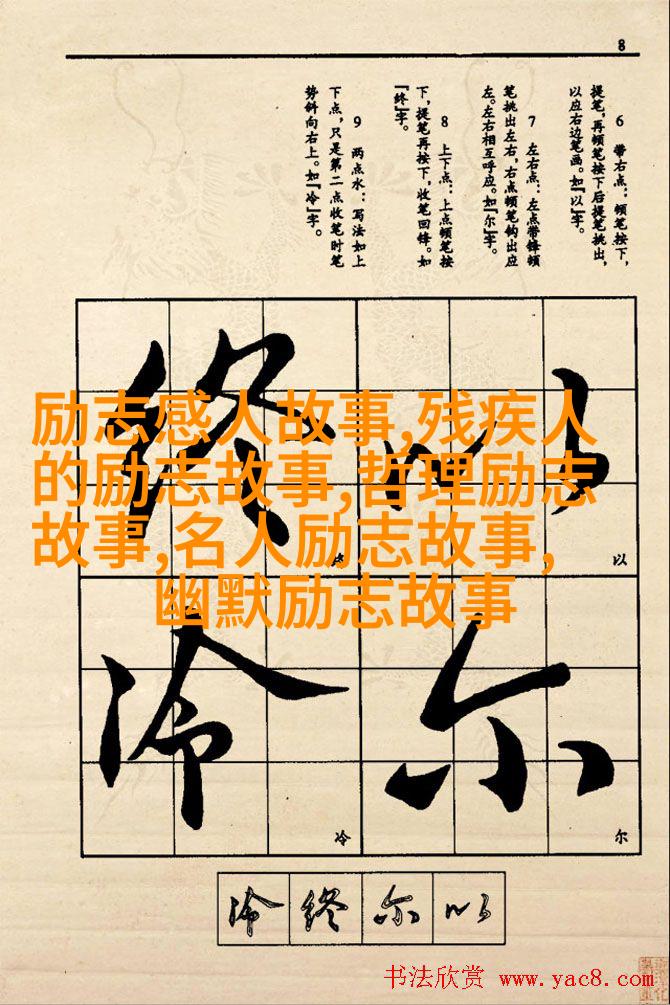 8
6 带右点：顿笔按下，
提笔，再顿笔按下后提笔挑出，
以应右边笔画。如『以』字。
7 左右点：左点带锋顿
笔挑出左右，右点顿笔钩出应
左。左右相互呼应。如『尔』字。
8 上下点：上点顿笔按
下，提笔再按下，收笔回锋。如
『终』字。
9 两点水：写法如上
下点，只是第二点收笔时笔
势斜向右上。如『冷』字。
励志感人故事,残疾人
的励志故事,哲理励志
故事,名人励志故事,
幽默励志故事
终 以
终 以
冷 尔
冷 尔
冷 终 尔 以
书法欣赏 www.yac8.com